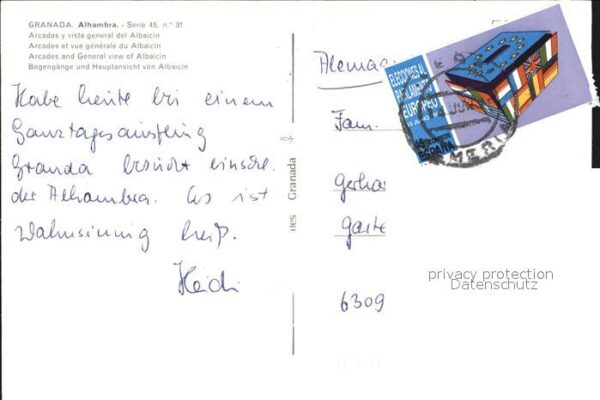 GRANADA. Alhambra. - Serie 45, n.° 31
Arcadas y vista general del Albaicín
Arcades et vue générale du Albaicín
Arcades and General view of Albaicín
Bogengänge und Hauptansicht von Albaicín
Habe heute bei einem
Ganztagesausflug
Granda besucht einschl.
der Alhambra. Es ist
Wahnsinnig heiß.
Heidi
Granada
ELECCIONES AL
PARLAMENTO
EUROPEO
45
ESPAÑA
Fam.
Garte
6309
privacy protection
Datenschutz